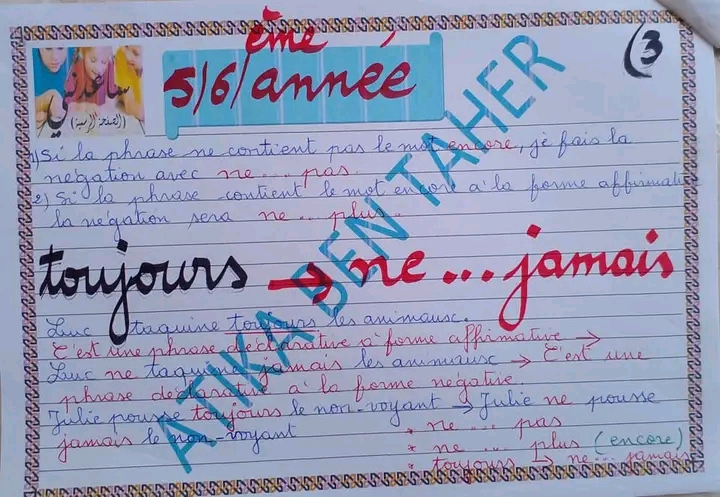 5/6/ème année
3
ساعدني
(الصفحة الرسمية)
1) Si la phrase ne contient pas le mot encore, je fais la
négation avec ne ... pas.
2) Si la phrase contient le mot encore à la forme affirmative
la négation sera ne ... plus.
toujours → ne ... jamais
Luc taquine toujours les animaux.
C'est une phrase déclarative à forme affirmative →
Luc ne taquine jamais les animaux → C'est une
phrase déclarative à la forme négative.
Julie pousse toujours le non-voyant → Julie ne pousse
jamais le non-voyant
* ne ... pas
* ne ... plus (encore)
* toujours → ne ... jamais
ATIKA BEN TAHER